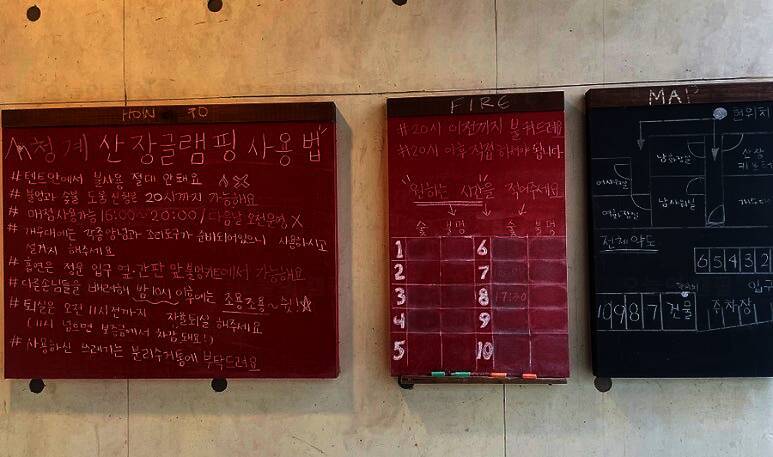 HOW TO
청계산장글램핑 사용법
# 텐트안에서 불사용 절대 안돼요
# 불멍과 숯불 도움 신청은 20시까지 가능해요
# 매점사용가능 16:00~20:00 / 다음날 오전운영 X
# 개수대에는 각종 양념과 조리도구가 준비되어있으니 사용하시고
설거지 해주세요
# 흡연은 정문 입구 옆, 간판 앞 불멍카트에서 가능해요
# 다른손님들을 배려해 밤 10시 이후에는 조용조용~쉿!
# 퇴실은 오전 11시전까지 자율퇴실 해주세요
(11시 넘으면 보증금에서 차감돼요!)
# 사용하신 쓰레기는 분리수거통에 부탁드려요
FIRE
#20시 이전까지 불 켜드려요
#20시 이후 직접 하셔야 됩니다
"원하는 시간"을 적어주세요
숯 불멍 숯 불멍
1 6
2 7
3 8 17:30
4 9
5 10
MAP
현위치
남자
산상
여자
전체약도
6 5 4 3 2
입구
10 9 8 7 건물 주차장